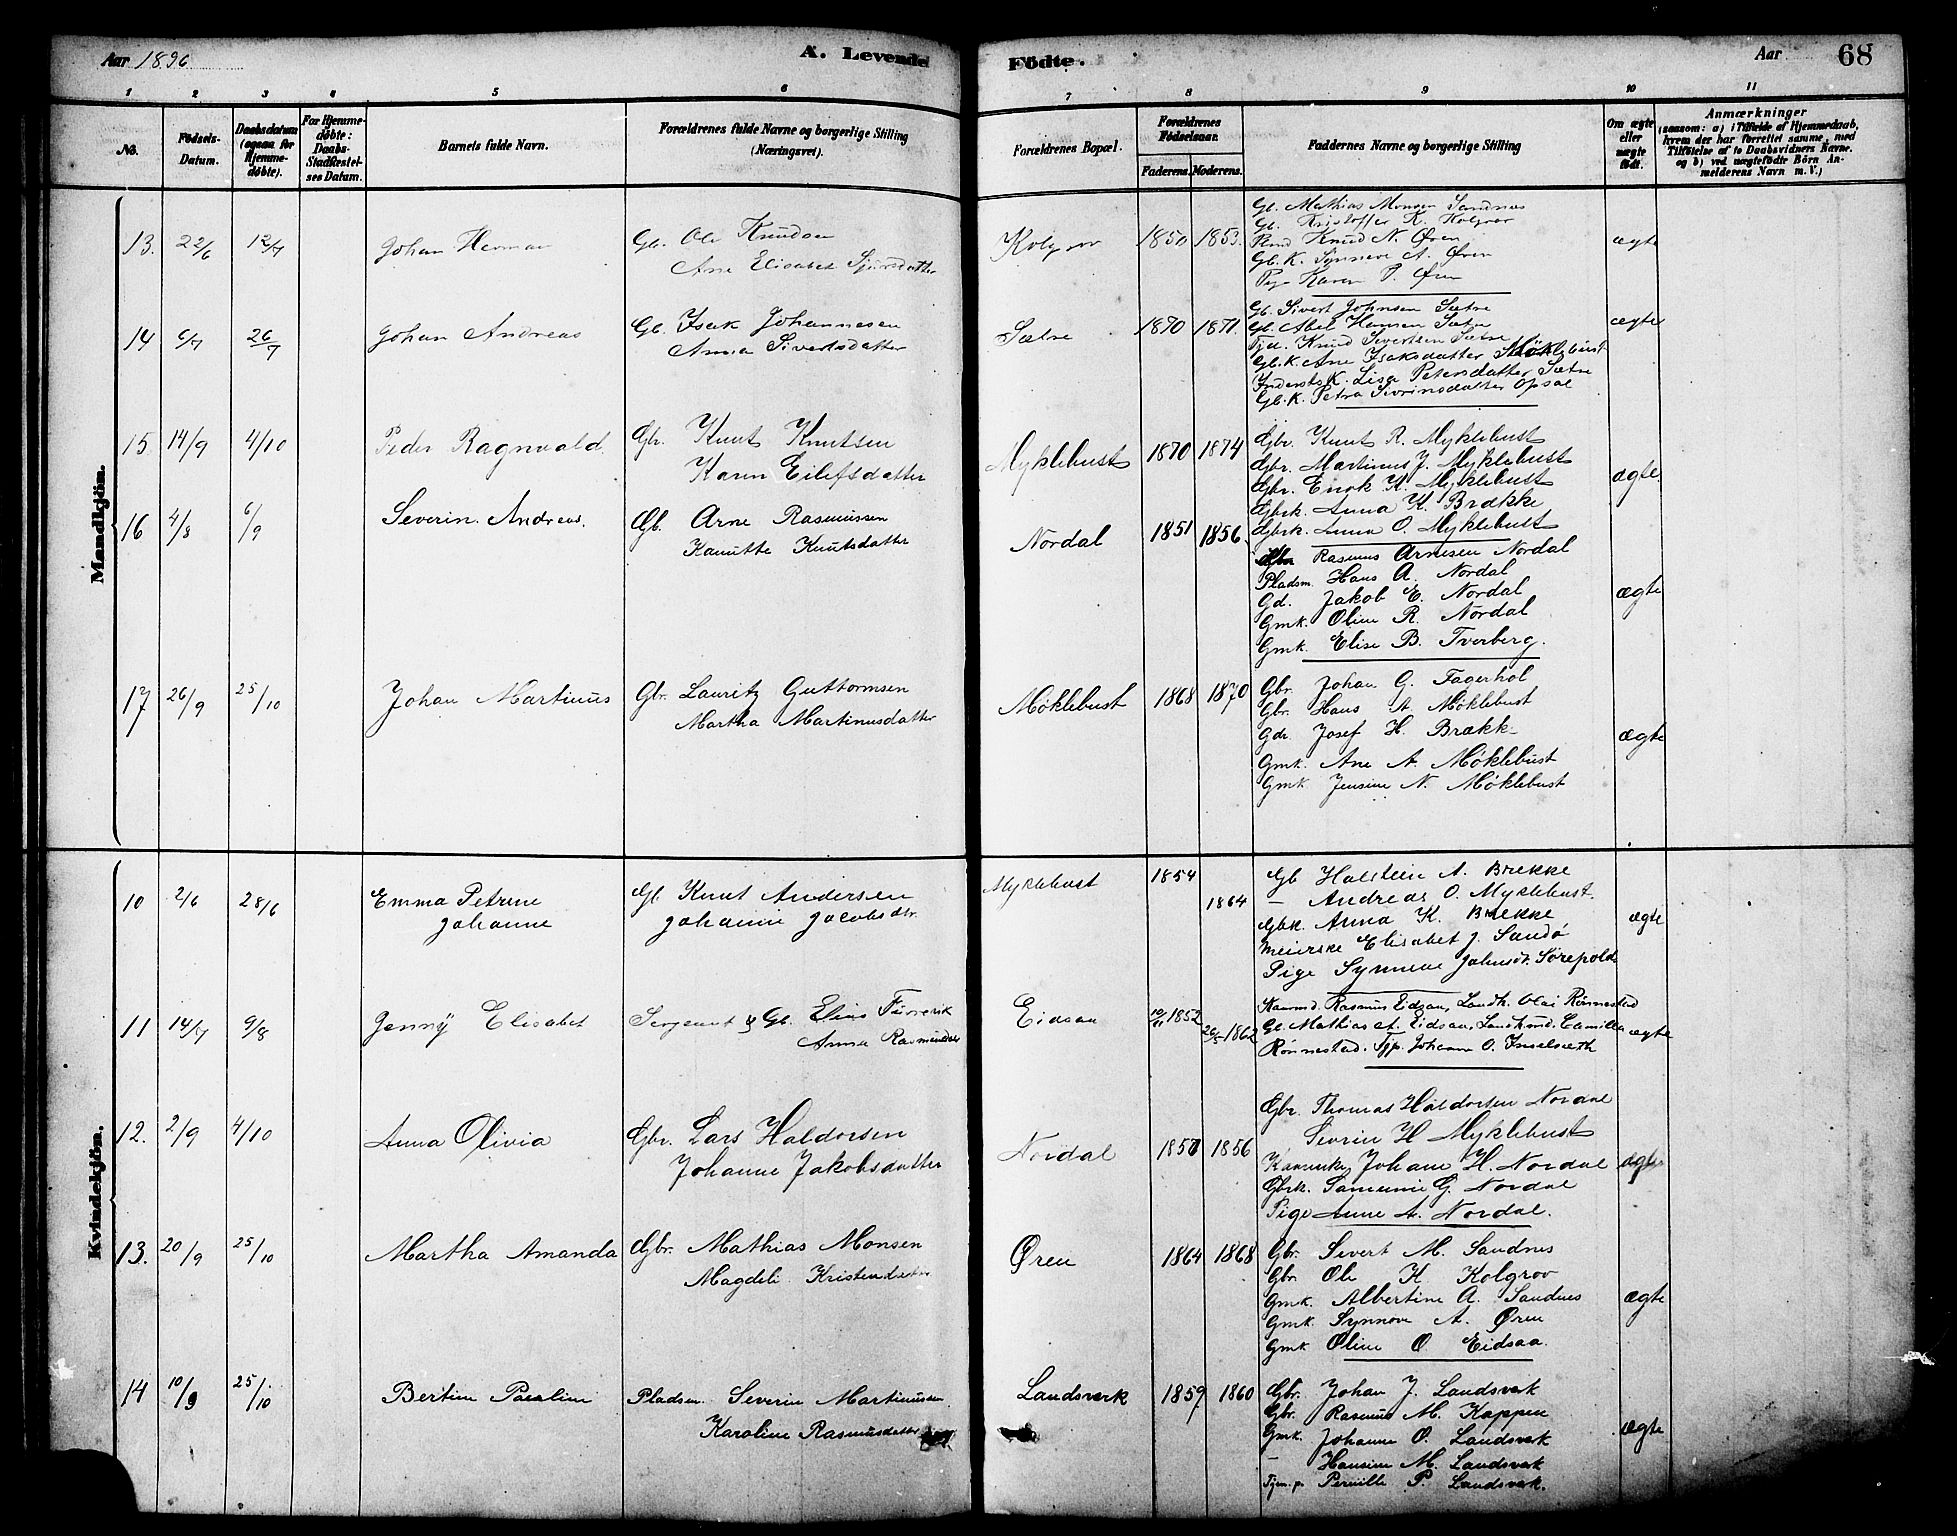 Aar 1896 A. Levende Födte. Aar 68
1 2 3 4 5 6 7 8 9 10 11
No. Fødsels-Datum. Daabsdatum (ogsaa for Hjemmedöbte). For Hjemmedöbte: Daabs-Stadfæstelses Datum. Barnets fulde Navn. Forældrenes fulde Navne og borgerlige Stilling (Næringsvei). Forældrenes Bopæl. Forældrenes Födselsaar. Faderens. Moderens. Faddernes Navne og borgerlige Stilling Om ægte eller uægte födt. Anmærkninger (saasom: a) i Tilfælde af Hjemmedaab, hvem der har forrettet samme, med Tilföielse af to Daabsvidners Navne. og b) ved uægtefödte Börn Anmelderens Navn m. V.)
Mandkjön.
13. 22/6 12/7 Johan Herman Gb. Ole Knudsen Kolgrov 1850 1853. ægte
Ane Elisabet Sjursdatter
Gb. Mathias Monsen Sandnes
Gb. Kristoffer K. Kolgrov
Knud N. Øren
Gb. K. Synneve A. Øren
Karen P. Øren
14 6/7 26/7 Johan Andreas Gb. Isak Johannesen Sætre 1870 1871. ægte
Anna Sivertsdatter
Gb. Sivert Johnsen Sætre
Gb. Abel Hansen Sætre
Knud Sivertsen Sætre
Gb. K. Ane Isaksdatter Möklebust
K. Lisa Petersdatter Sætre
Gb. K. Petra Sivrinsdatter Opsal
15 14/9 4/10 Peder Ragnvald. Gbr. Knut Knutsen Myklebust 1870 1874 ægte
Karen Eilefsdatter
Gbr. Knut R. Myklebust
Gbr. Martinus J. Myklebust
Gbr. Enok K. Myklebust
Gbrk. Anna K. Brække
Gbrk. Anna O. Myklebust
16 4/8 6/9 Severin Andreas. Gb. Arne Rasmussen Nordal 1851 1856. ægte
Kanutte Knutsdatter
Rasmus Arnesen Nordal
Pladsm. Hans A. Nordal
Gd. Jakob E. Nordal
Gmk. Oline R. Nordal
Gmk. Elise B. Tverberg.
17 26/9 25/10 Johan Martinus Gbr. Lauritz Guttormsen Møklebust 1868 1870 ægte
Martha Martinusdatter
Gbr. Johan G. Fagerhol
Gbr. Hans A. Møklebust
Gdr. Josef H. Brækk
Gmk. Ane A. Møklebust
Gmk. Jensine N. Møklebust
Kvindekjön.
10 2/6 28/6 Emma Petrine Gb Knut Andersen Myklebust 1854 1864 ægte
Johanne Johanne Jacobsdtr.
Gb Halstein A. Brekke
— Andreas O. Myklebust.
Gbk. Anna K. Brekke
Meierske Elisabet J. Sandö
Pige Synneve Johnsdt.
11 14/7 9/8 Jenny Elisabet Sergeant & Gb. Elias Eidsaa 10/11 1852 26/5 1862 ægte
Anna
Rasmus Eidsaa, Landh. Olai Rønnestad
Gb. Mathias A. Eidsaa, Landhmd. Camilla
Rönnestad. Tjp. Johanne O.
12. 2/9 4/10 Anna Olivia Gbr. Lars Haldorsen Nordal 1856 ægte
Johanne Jakobsdatter
Gbr. Thomas Haldorsen Nordal
Sivrin H Myklebust
Johane H. Nordal
Gbrk. G. Nordal
Pige Anne A. Nordal.
13. 20/9 25/10 Martha Amanda Gbr. Mathias Monsen Øren 1864 1868 ægte
Magdeli Kristensdatter
Gbr. Sivert M. Sandnes
Gbr Ole K Kolgrov
Gmk. Albertine A. Sandnes
Gmk. Synnøve A. Øren
Gmk Oline O. Eidsaa
14 10/9 25/10 Bertine Pauline Pladsm. Severin Martinusen Landsverk 1859 1860 ægte
Karoline Rasmusdatter
Gbr. Johan J. Landsverk
Gbr. Rasmus M. Kappen
Gmk. Johanne O. Landsverk
— Hansine M. Landsverk
Pernille P. Landsverk.